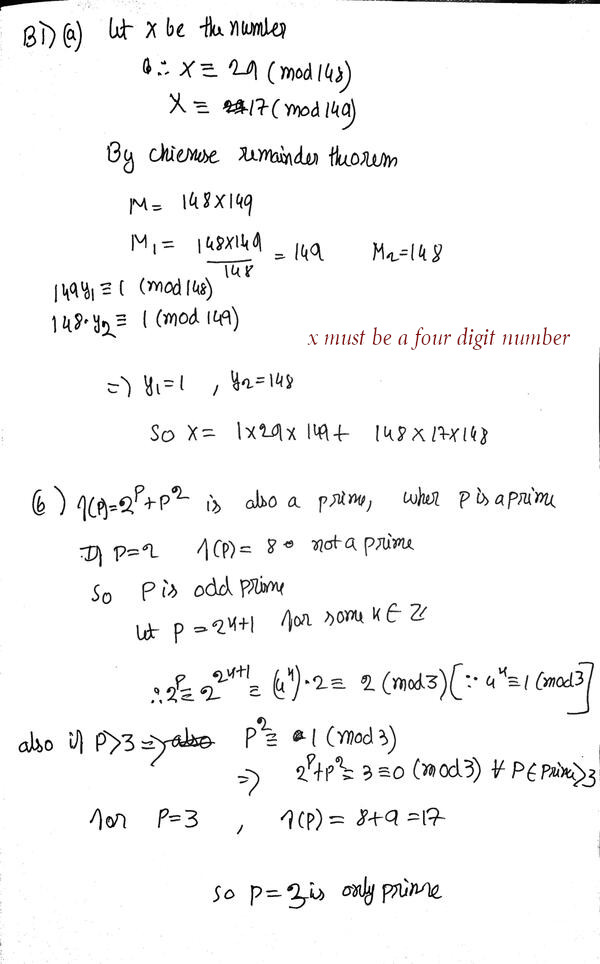 B1) (a) let x be the number
∴ x ≡ 29 (mod 148)
x ≡ 17 (mod 149)
By chienese remainder theorem
M = 148×149
M₁ = 148×149/148 = 149 M₂=148
149y₁ ≡ 1 (mod 148)
148·y₂ ≡ 1 (mod 149)
x must be a four digit number
=) y₁=1 , y₂=148
So x = 1×29×149+ 148×17×148
(b) f(P)=2^P+P^2 is also a prime, wher P is a prime
If P=2 f(P)= 8 not a prime
So P is odd prime
let P = 2k+1 for some k ∈ Z
∴ 2^P ≡ 2^(2k+1) ≡ (4^k)·2 ≡ 2 (mod 3) [∵ 4^k ≡ 1 (mod 3]
also if P>3 => P^2 ≡ 1 (mod 3)
=> 2^P+P^2 ≡ 3 ≡ 0 (mod 3) ∀ P ∈ Prime>3
for P=3 , f(P) = 8+9 = 17
so P = 3 is only prime